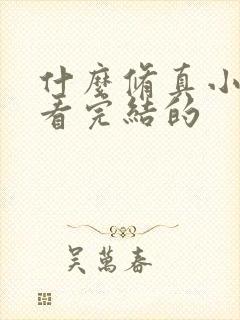 什麼脩真小
看完結的
吳萬春